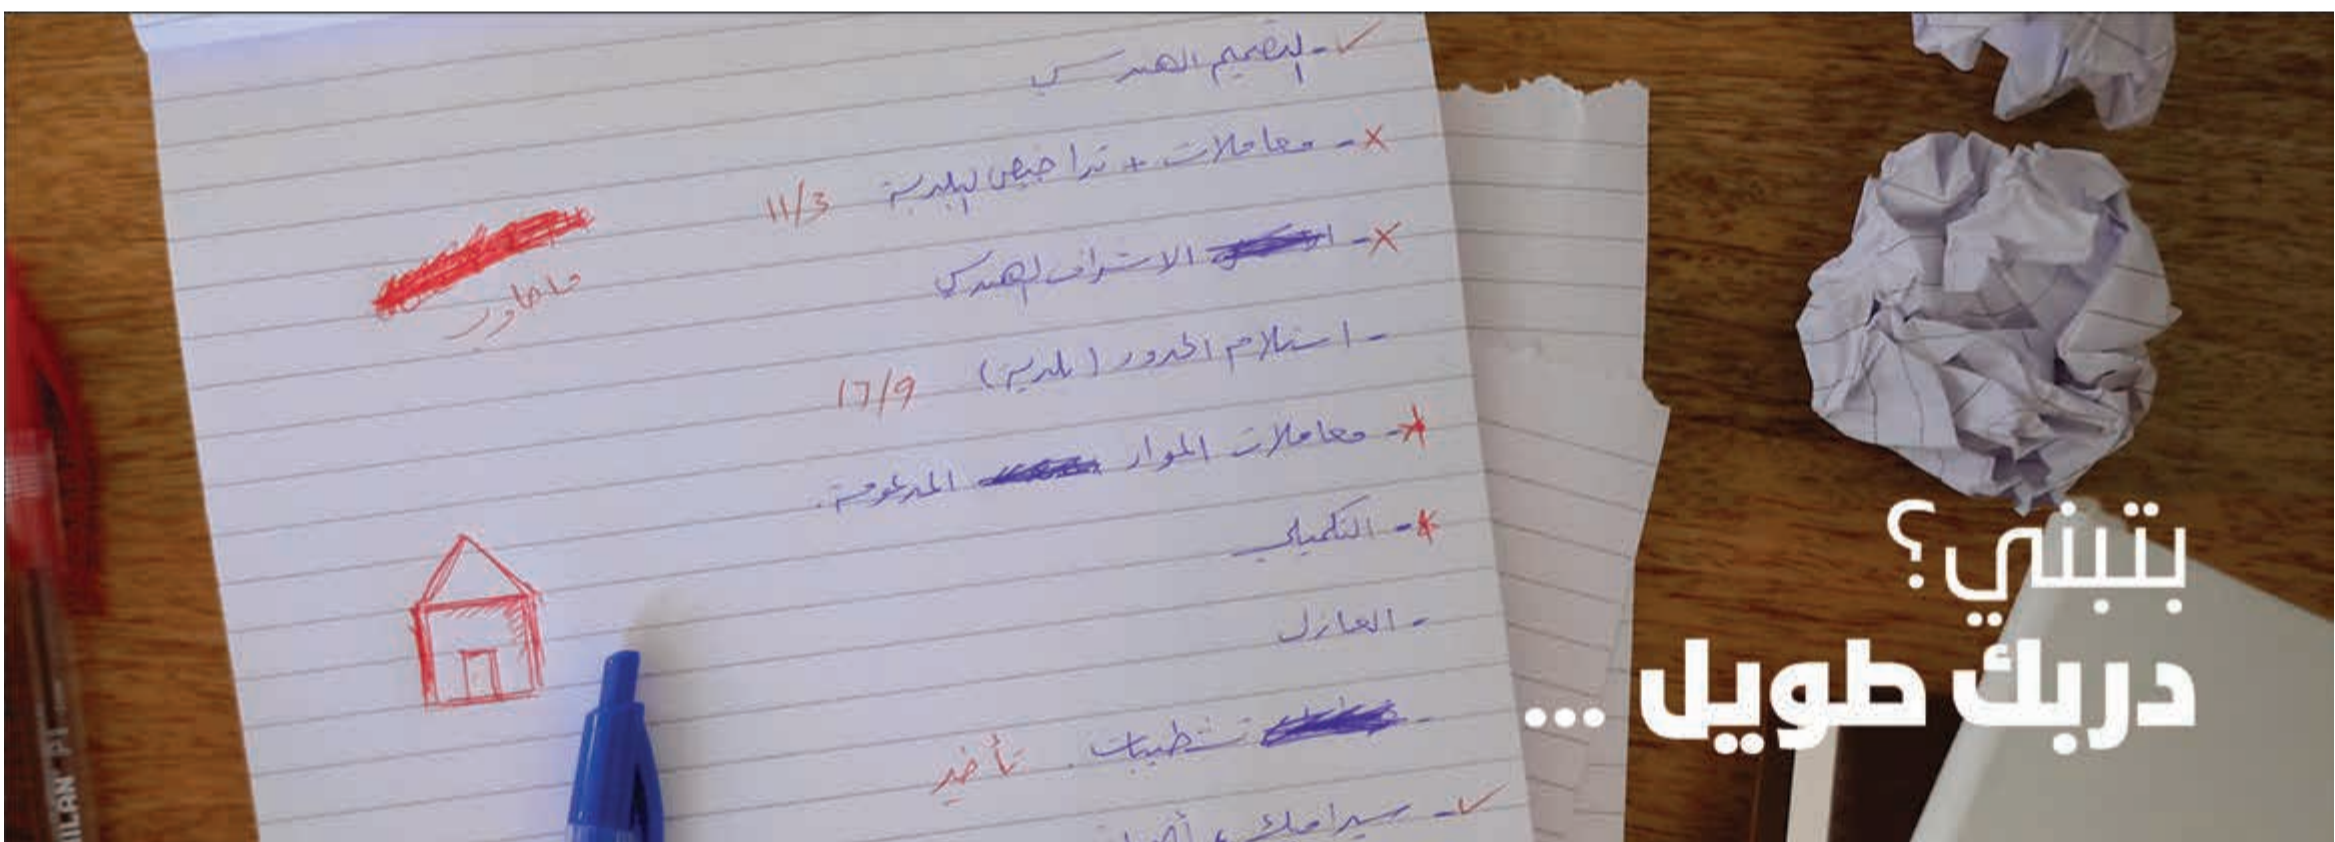 ✓ - التصميم الهندسي
× - معاملات + تراخيص البلدية 11/3
× - الاشراف الهندسي
ماجاوب
- استلام الحدود (بلدية) 17/9
× - معاملات المواد المدعومة.
× - التكميلي
- العازل
- تشطيبات. تأخير
✓ - سيراميك،
بتبني؟
دربك طويل ...
MILAN P1